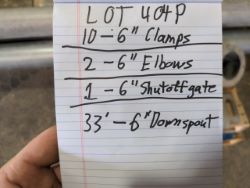 LOT 404P
10-6" Clamps
2-6" Elbows
1-6" Shutoff gate
33'-6" Downspout